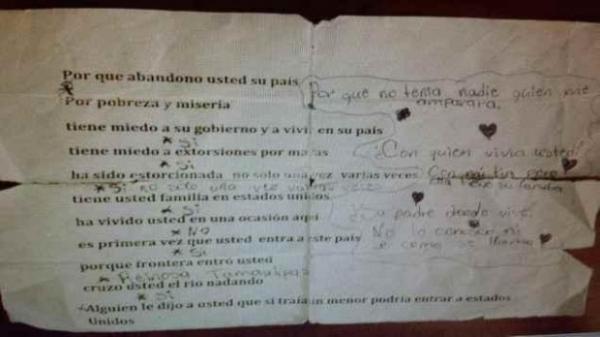 Por que abandono usted su pais
Por pobreza y miseria
tiene miedo a su gobierno y a vivi en su pais
* Si
tiene miedo a extorsiones por ma as
* Si
ha sido estorcionada no solo una vez varias veces
* Si no solo una vez varias veces
tiene usted familia en estados unidos
* Si
ha vivido usted en una ocasión aqui
* NO
es primera vez que usted entra a este pais
* Si
porque frontera entró usted
* Reinosa Tamaulipas
cruzo usted el rio nadando
* Si
Alguien le dijo a usted que si traía un menor podria entrar a estados
Unidos
Por que no tenia nadie quien me
amparara.
¿Con quien vivia usted?
Con mi tia pero
ella tiene su familia
su padre donde vive
No lo conosco ni
se como se llama